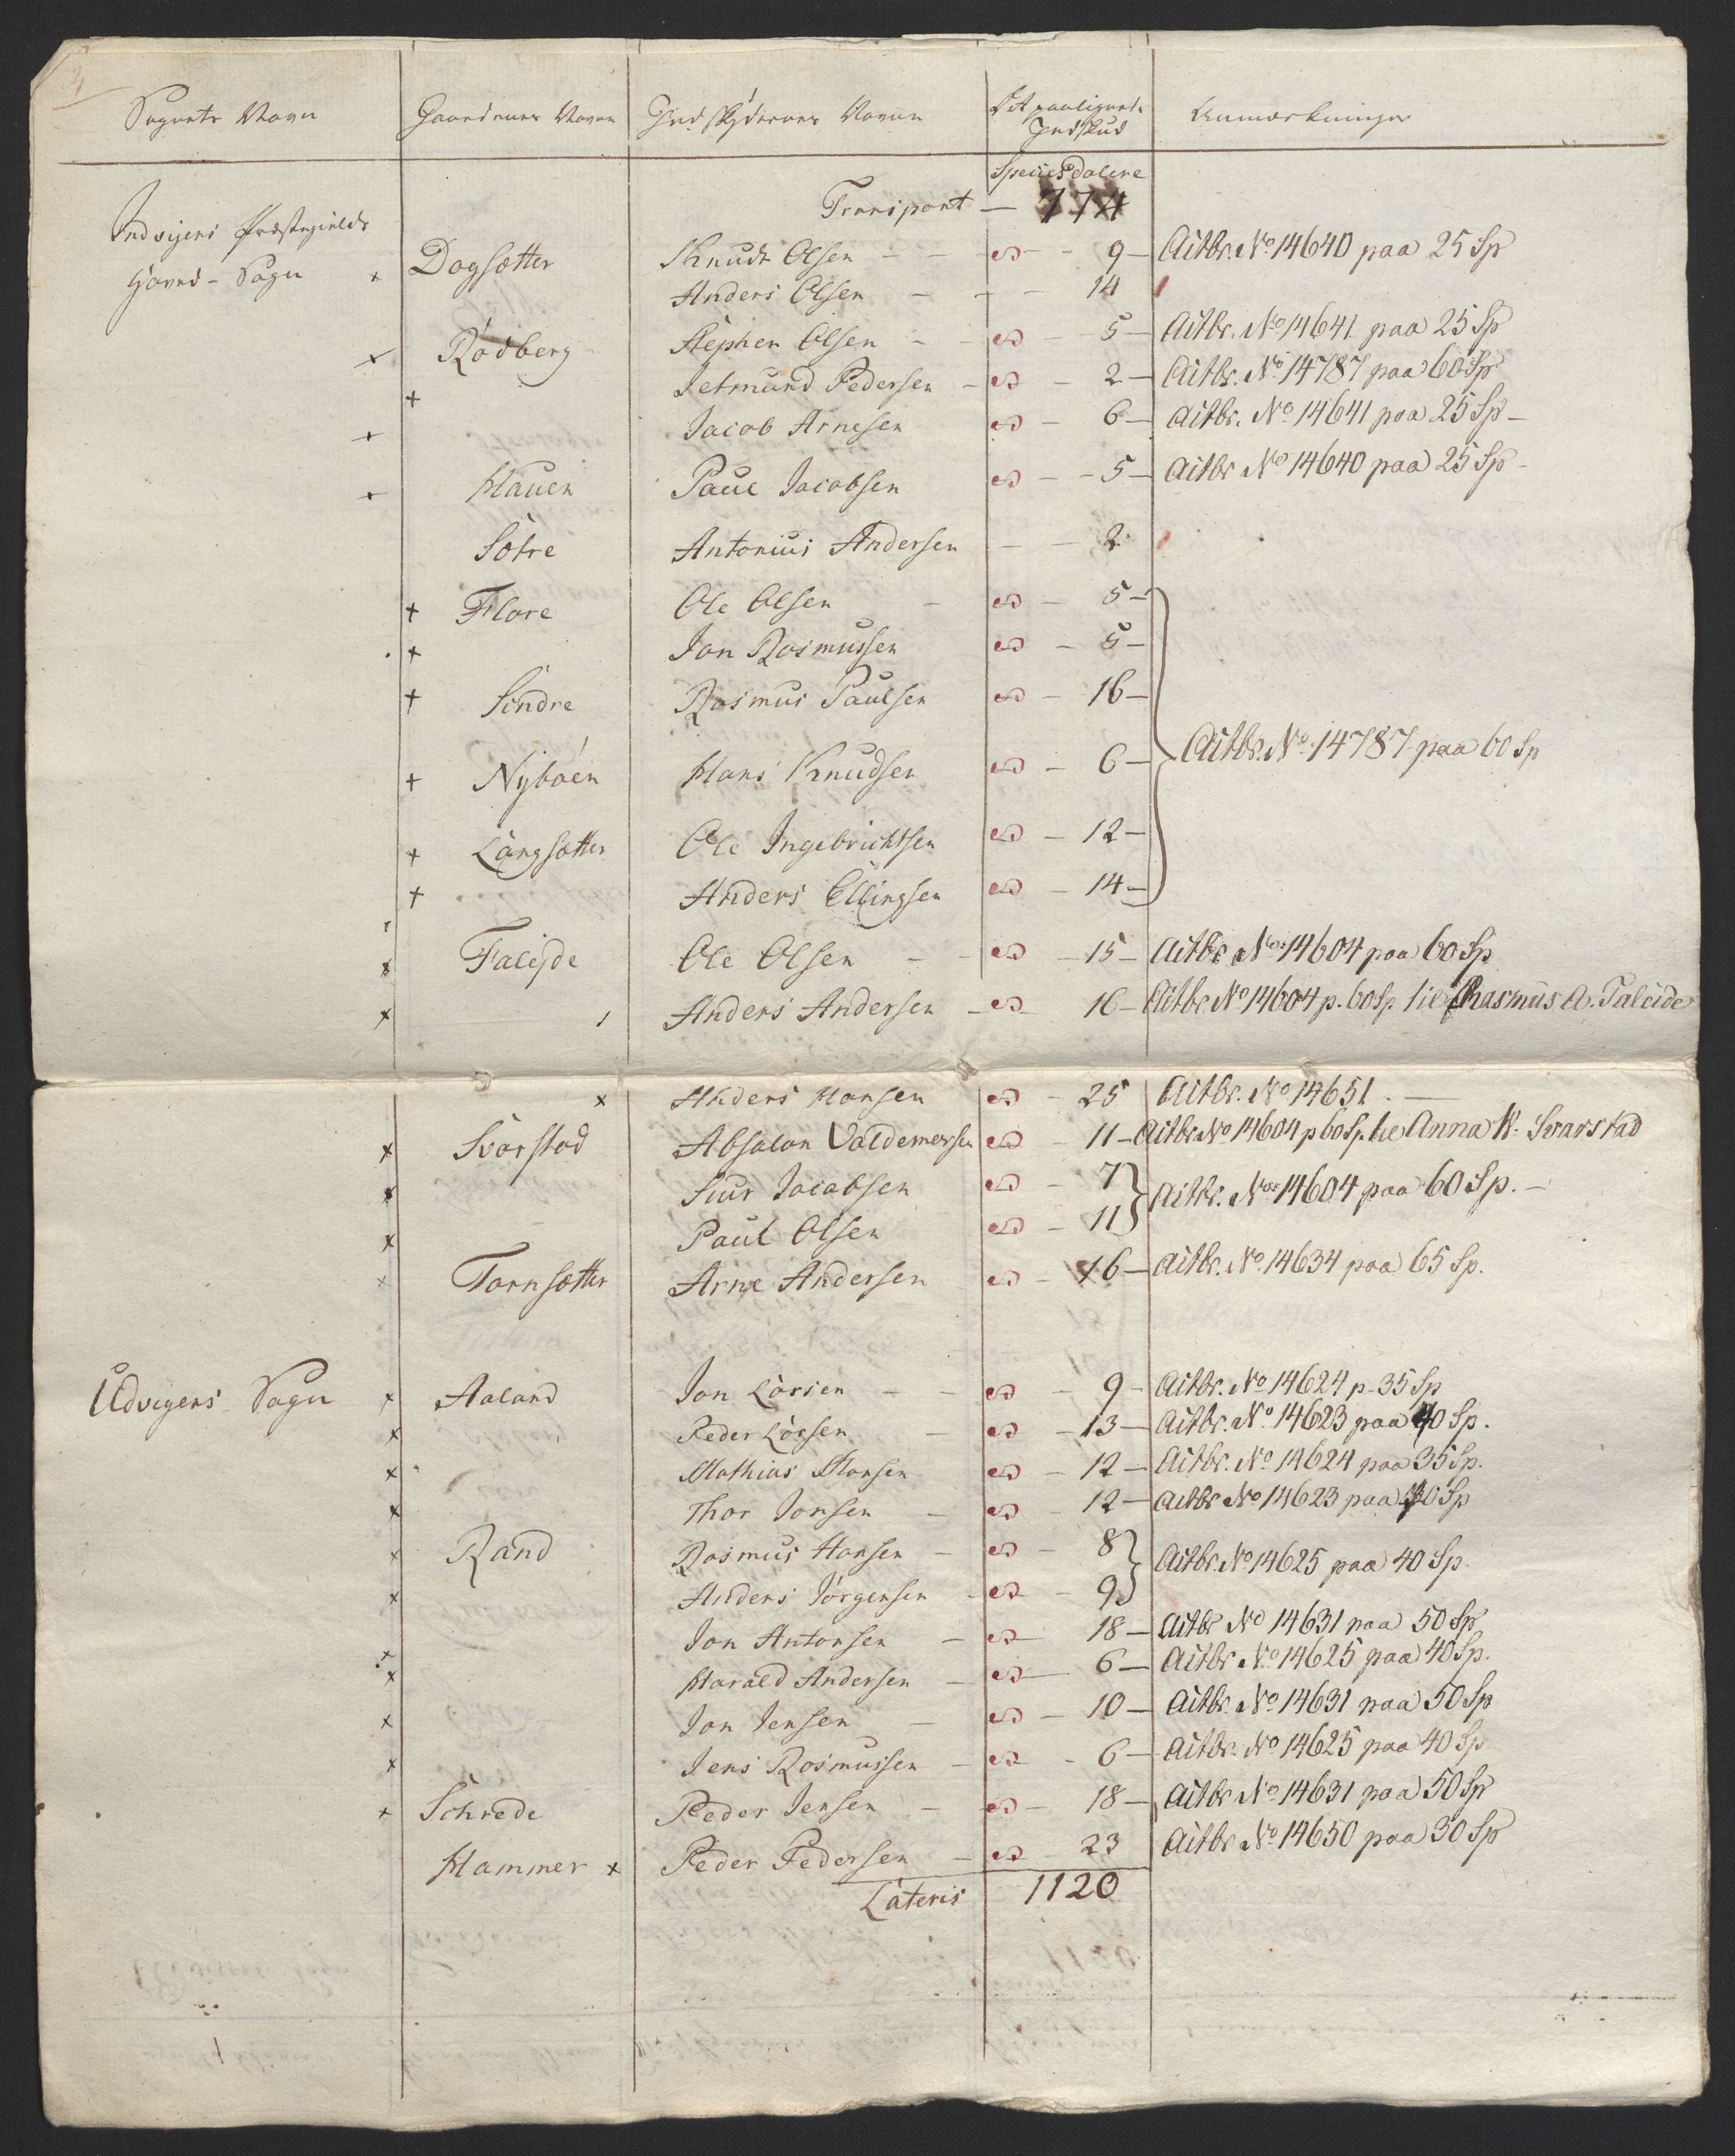 Sognets Navn Gaardenes Navne Indskydernes Navne Det paalignede Indskud Anmærkninger
Species Daler
Transport — 774
Indvigens Præstegields
Hoved-Sogn
x Dagsætter Knudt Olsen - - 9 - Actbr. No 14640 paa 25 Sp
Anders Olsen - - 14
x Rödberg Stephen Olsen - - 5 - Actbr. No 14641 paa 25 Sp
+ Jetmund Pedersen - 2 - Actbr. No 14787 paa 60 Sp
x Jacob Arnesen - 6 - Actbr. No 14641 paa 25 Sp -
x Hauen Paul Jacobsen - 5 - Actbr No 14640 paa 25 Sp -
Sötre Antonius Andersen - - 2
+ Flore Ole Olsen - 5 -
+ Jon Rasmussen - 5 -
+ Sindre Rasmus Paulsen - 16 -
+ Nyböen Hans Knudsen - 6 - Actbr. No 14787 paa 60 Sp
+ Langsætter Ole Ingebrichtsen - 12 -
+ Anders Ellingsen - 14 -
x Faleyde Ole Olsen - - 15 - Actbr No 14604 paa 60 Sp
x Anders Andersen - 16 - Actbr No 14604 p. 60 Sp. til Rasmus A. Faleide
x Anders Hansen - 25 Actbr. No 14651. —
x Svarstad Absalon Valdemersen - 11 - Actbr No 14604 p 60 Sp til Anna N. Svarstad
x Siur Jacobsen - 7
x Paul Olsen - 11 Actbr. No 14604 paa 60 Sp. -
x Tornsætter Arne Andersen - 16 - Actbr. No 14634 paa 65 Sp.
Udvigens Sogn x Aaland Jon Larsen - - 9 - Actbr. No 14624 p. 35 Sp
x Peder Larsen - - 13 - Actbr. No 14623 paa 40 Sp.
x Mathias Hansen - 12 - Actbr. No 14624 paa 35 Sp.
x Thor Jonsen - - 12 - Actbr No 14623 paa 40 Sp
x Rand Rasmus Hansen - - 8
x Anders Jörgensen - - 9 Actbr. No 14625 paa 40 Sp.
Jon Antonsen - 18 - Actbr No 14631 paa 50 Sp
x Harald Andersen - 6 - Actbr No 14625 paa 40 Sp.
x Jon Jensen - - 10 - Actbr. No 14631 paa 50 Sp
x Jens Rasmussen - - 6 - Actbr. No 14625 paa 40 Sp
x Schrede Peder Jensen - - 18 - Actbr No 14631 paa 50 Sp
Hammer x Peder Pedersen - - 23 Actbr No 14650 paa 30 Sp
Lateris 1120